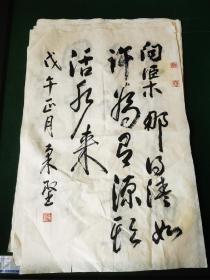 问渠那得清如
许为有源头
活水来
戊午正月秉坚